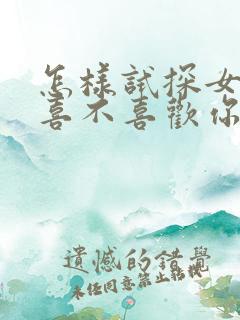 怎樣試探女
喜不喜歡你
遺憾的錯覺
未经同意禁止转载